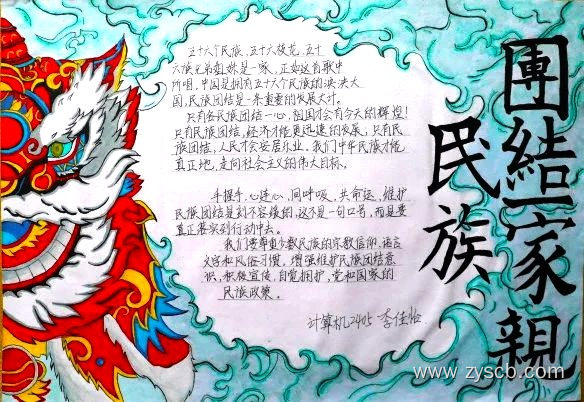 五十六个民族，五十六枝花，五十
六族兄弟姐妹是一家，正如这首歌中
所唱，中国是拥有五十六个民族的泱泱大
国，民族团结是一条重要的发展大计。
只有各民族团结一心，祖国才会有今天的辉煌！
只有民族团结，经济才能更迅速的发展，只有民
族团结，人民才会安居乐业，我们中华民族才能
真正地，走向社会主义的伟大目标。
手握手，心连心，同呼吸，共命运，维护
民族团结是刻不容缓的，这不是一句口号，而是要
真正落实到行动中去。
我们要尊重少数民族的宗教信仰，语言
文字和风俗习惯，增强维护民族团结意
识，积极宣传，自觉拥护，党和国家的
民族政策。
计算机2405 李佳怡
民族
團結一家親
www.zyscb.com